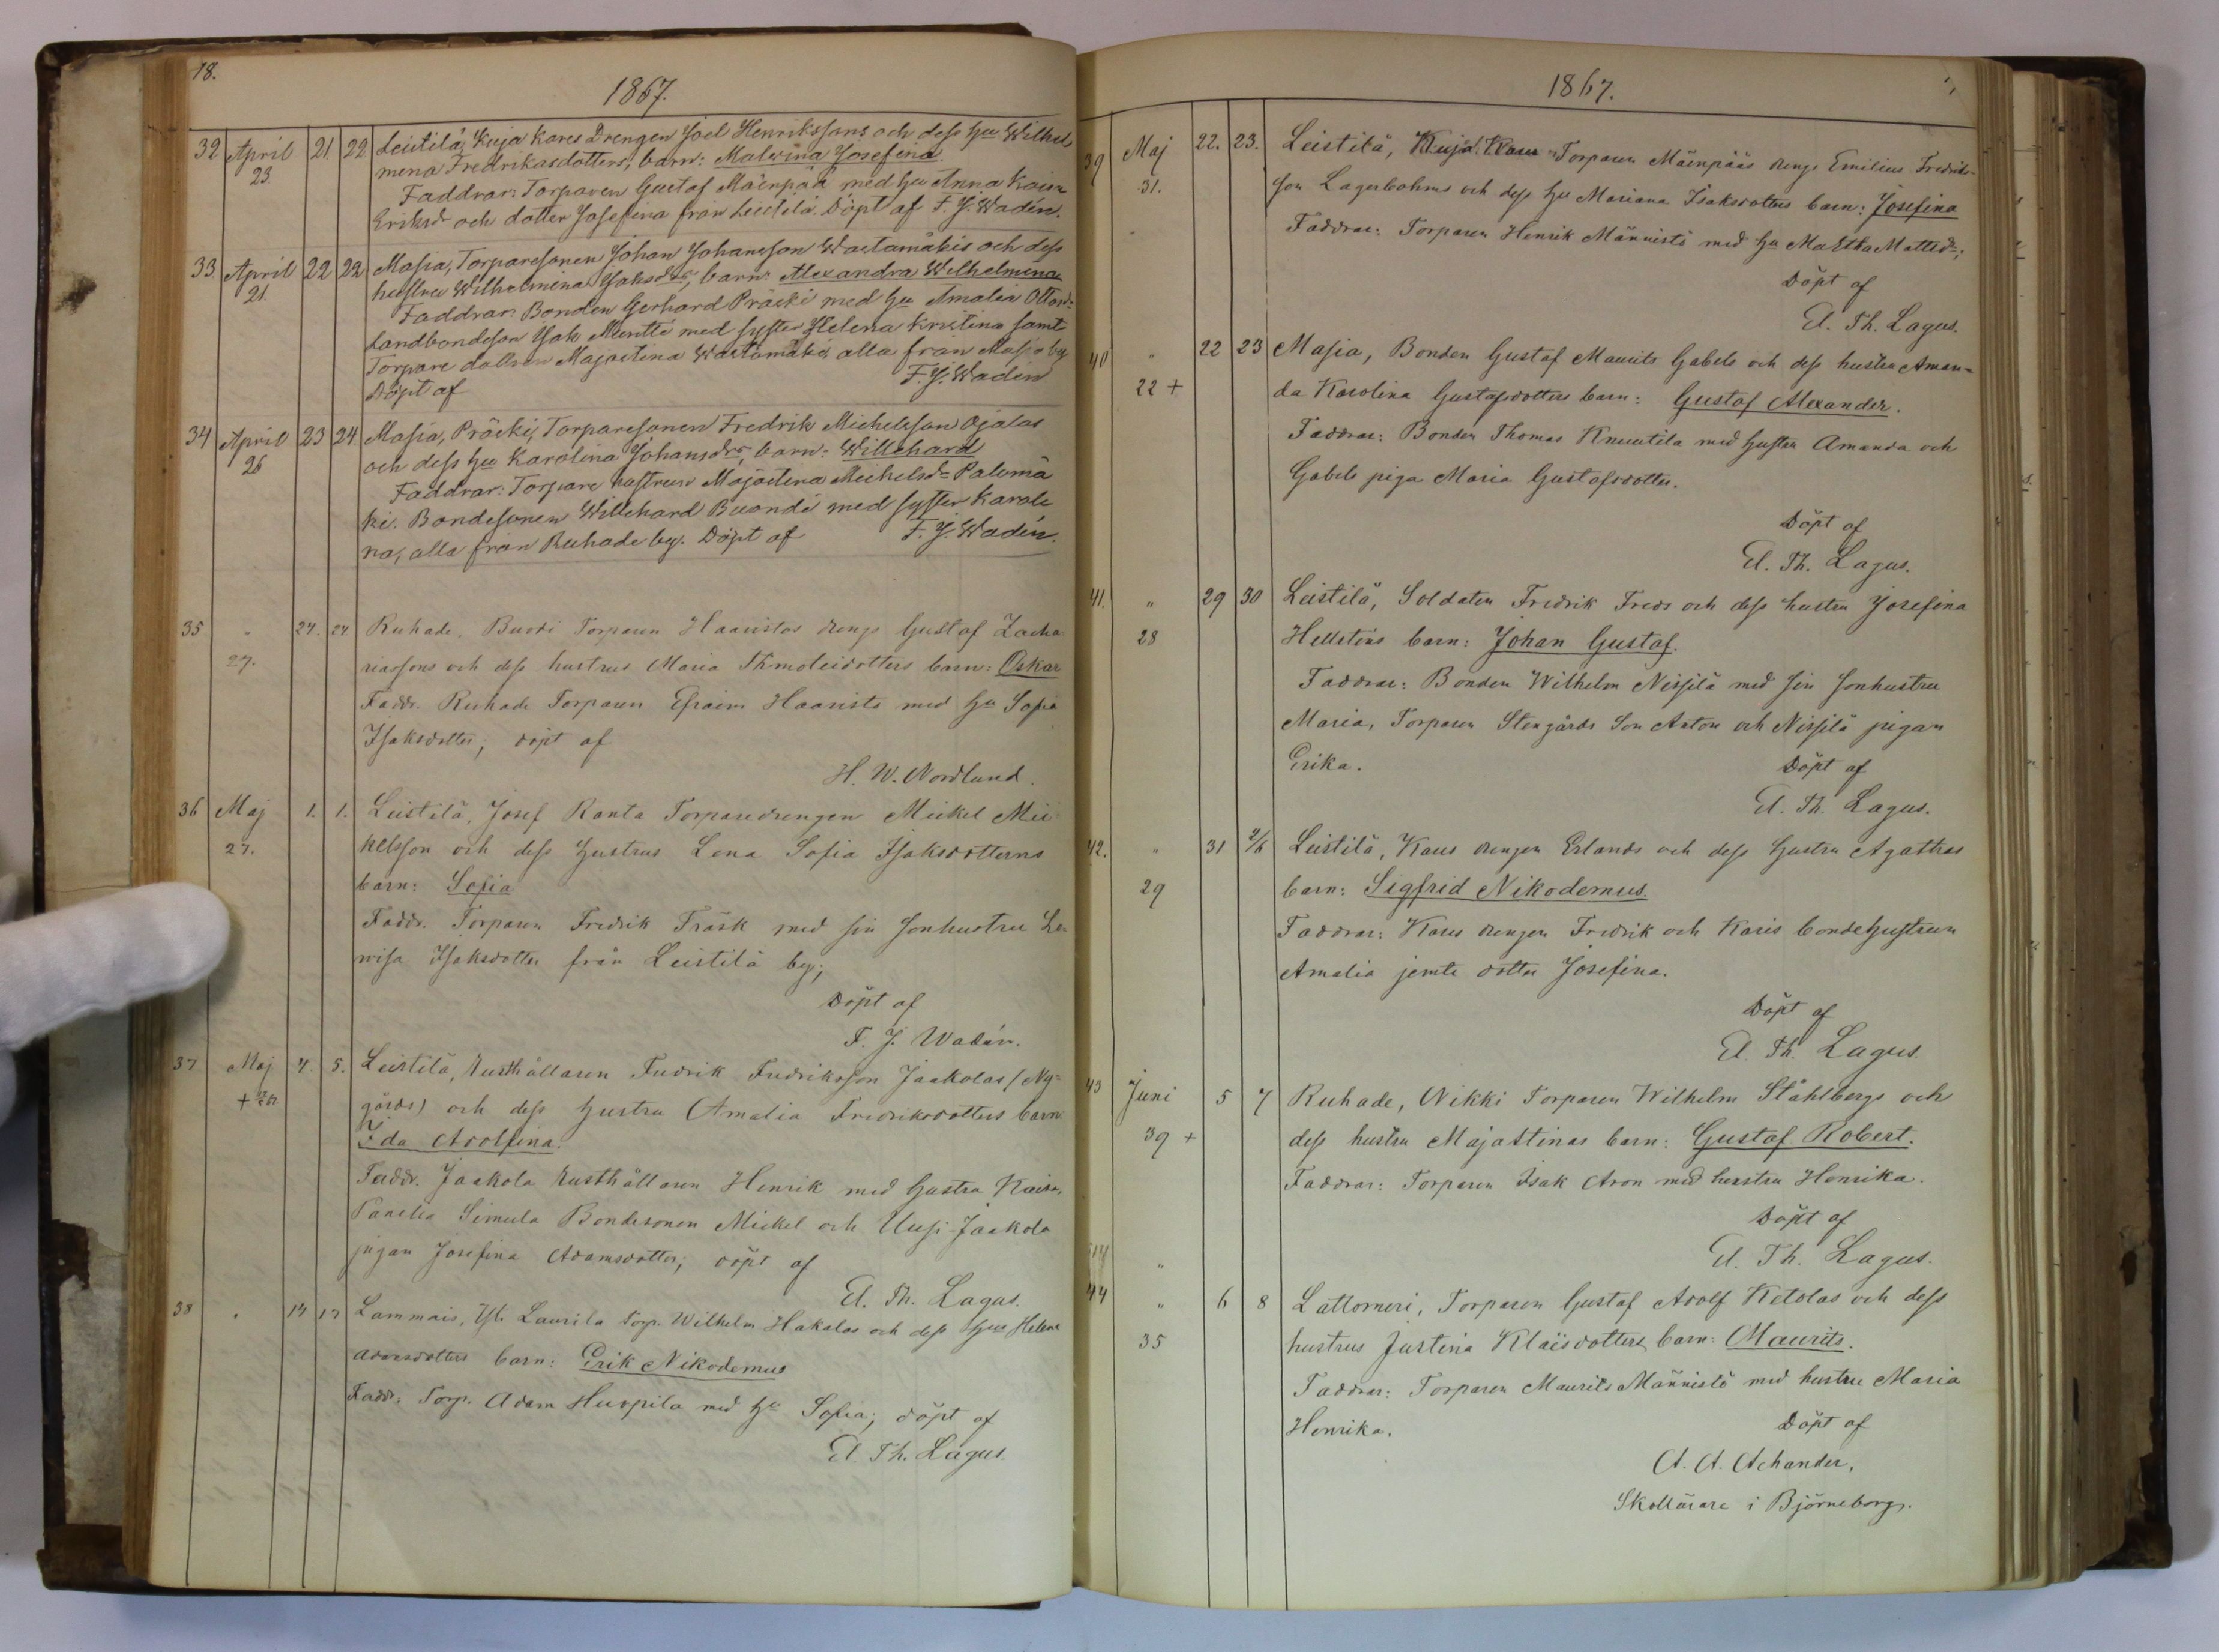 18.
1867.
32 April 21 22 Leistilä, Kuja Kares Drengen Joel Henrikssons och dess hu Wilhel
23. mena Fredriksdotters, barn: Malvina Josefina.
Faddrar: Torparen Gustaf Mäenpää med hu Anna Kaisa
Eriksdr och dotter Josefina från Leistilä. Döpt af F. J. Wadén.
33 April 22 22 Masia, Torparesonen Johan Johansson Wartamäkis och dess
21. hustru Wilhelmina Jaksdrs, barn: Alexandra Wilhelmina
Faddrar: Bonden Gerhard Präcki med hu Amalia Ottosdr
Landbondeson Isak Mentti med syster Helena Kristina samt
Torpare dottren Majastina Wartamäki, alla från Masia by
Döpt af F. J. Wadén
34 April 23 24 Masia, Präcki, Torparesonen Fredrik Michelsson Ojalas
26 och dess hu Karolina Johansdrs, barn: Willehard
Faddrar: Torpare hustrun Majastina Michelsdr Palomä
ki. Bondesonen Willehard Buondi med syster Karoli
na, alla från Ruhade by. Döpt af F. J. Wadén.
35 " 24. 24 Ruhade, Buodi Torparen Haanistos drengs Gustaf Zacha
27. riassons och dess hustrus Maria Timoteidotters barn: Oskar
Faddr. Ruhade Torparen Efraim Haanisto med hu Sofia
Isaksdotter; döpt af
H. W. Nordlund.
36 Maj 1. 1. Leistilä, Josef Ranta Torparedrengen Mickel Mi
27. kelsson och dess hustrus Lena Sofia Isaksdotterns
barn: Sofia
Faddr. Torparen Fredrik Träsk med sin sonhustru Lo
visa Isaksdotter från Leistilä by;
Döpt af
F. J. Wadén.
37 Maj 4. 5. Leistilä, Rusthållaren Fredrik Fredriksson Jaakolas (Ny-
+ gårds) och dess hustru Amalia Fredriksdotters barn:
Ida Adolfina.
Faddr. Jaakola Rusthållaren Henrik med hustru Kaisa,
Panelia Simula Bondesonen Mickel och Uusi-Jaakola
pigan Josefina Adamsdotter; döpt af
El. Th. Lagus.
38 " 17 17 Lammais, Yli Laurila Torp. Wilhelm Hakalas och dess hus Helena
Adamsdotters barn: Erik Nikodemus
Faddr. Torp. Adam Hurpila med hu Sofia; döpt af
El. Th. Lagus.
1867.
39 Maj 22. 23. Leistilä, Kuja Kares Torparen Mäenpääs drengs Emilius Fredriks-
31. son Lagerbohms och dess hus Mariana Isaksdotters barn: Josefina
Faddrar: Torparen Henrik Männistö med hu Martha Mattsdr;
Döpt af
El. Th. Lagus.
40 " 22 23 Masia, Bonden Gustaf Maurits Gabels och dess hustru Aman-
22 + da Karolina Gustafsdotters barn: Gustaf Alexander.
Faddrar: Bonden Thomas Knuutila med hustru Amanda och
Gabels piga Maria Gustafsdotter.
Döpt af
El. Th. Lagus.
41. " 29 30 Leistilä, Soldaten Fredrik Freds och dess hustru Josefina
28 Hellsténs barn: Johan Gustaf.
Faddrar: Bonden Wilhelm Nissilä med sin sonhustru
Maria, Torparen Stengårds Son Anton och Nissilä pigan
Erika. Döpt af
El. Th. Lagus.
42. " 31 2/6 Leistilä, Kares drengen Erlands och dess hustru Agathas
29 barn: Sigfrid Nikodemus
Faddrar: Kares drengen Fredrik och Karis bondehustrun
Amalia jemte dotter Josefina.
Döpt af
El. Th. Lagus.
43 Juni 5 7 Ruhade, Nikki Torparen Wilhelm Ståhlbergs och
39 + dess hustru Majastinas barn: Gustaf Robert.
Faddrar: Torparen Isak Aron med hustru Henrika.
Döpt af
El. Th. Lagus.
44 " 6 8 Lattomeri, Torparen Gustaf Adolf Ketolas och dess
35 hustrus Justina Klaësdotters barn: Maurits.
Faddrar: Torparen Maurits Männistö med hustru Maria
Henrika. Döpt af
A. A. Achander,
Skollärare i Björneborg.